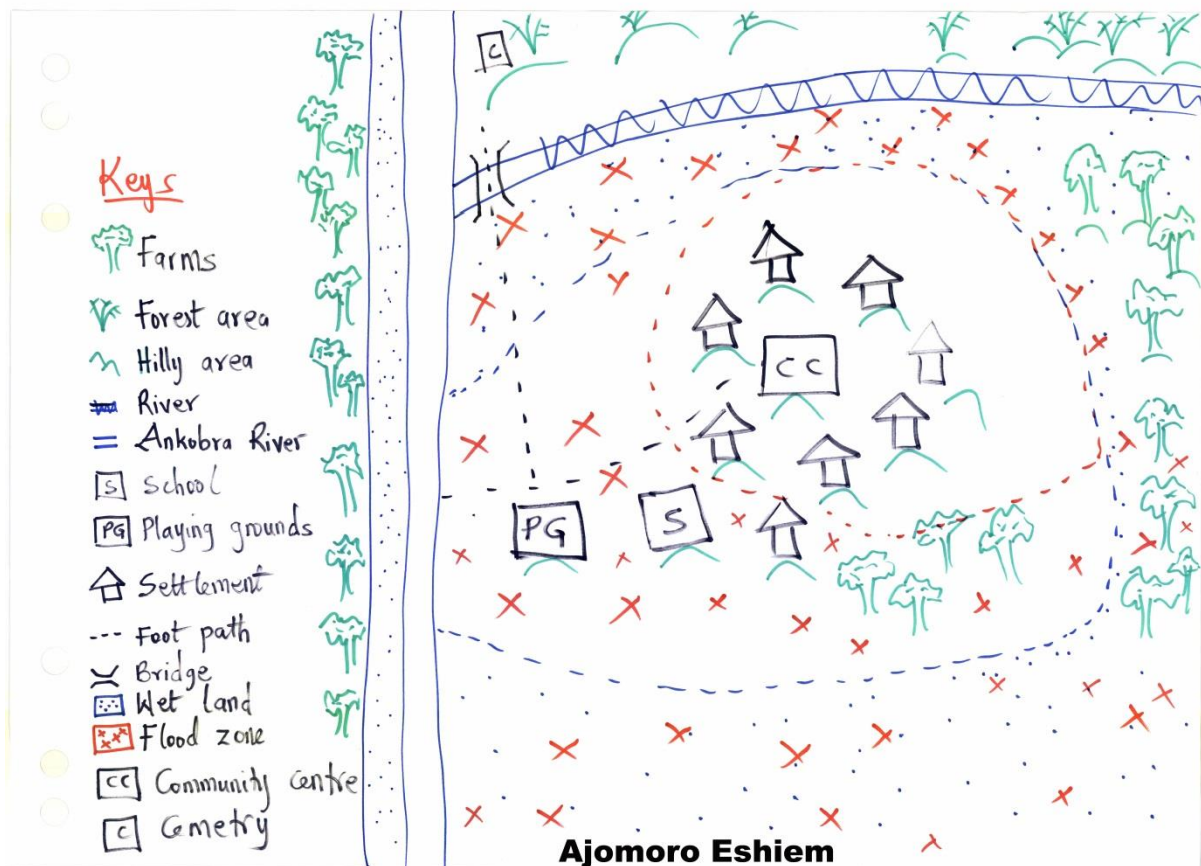 C
Keys
Farms
Forest area
Hilly area
River
Ankobra River
S School
PG Playing grounds
Settlement
Foot path
Bridge
Wet land
Flood zone
CC Community centre
C Cemetry
CC
PG
S
Ajomoro Eshiem